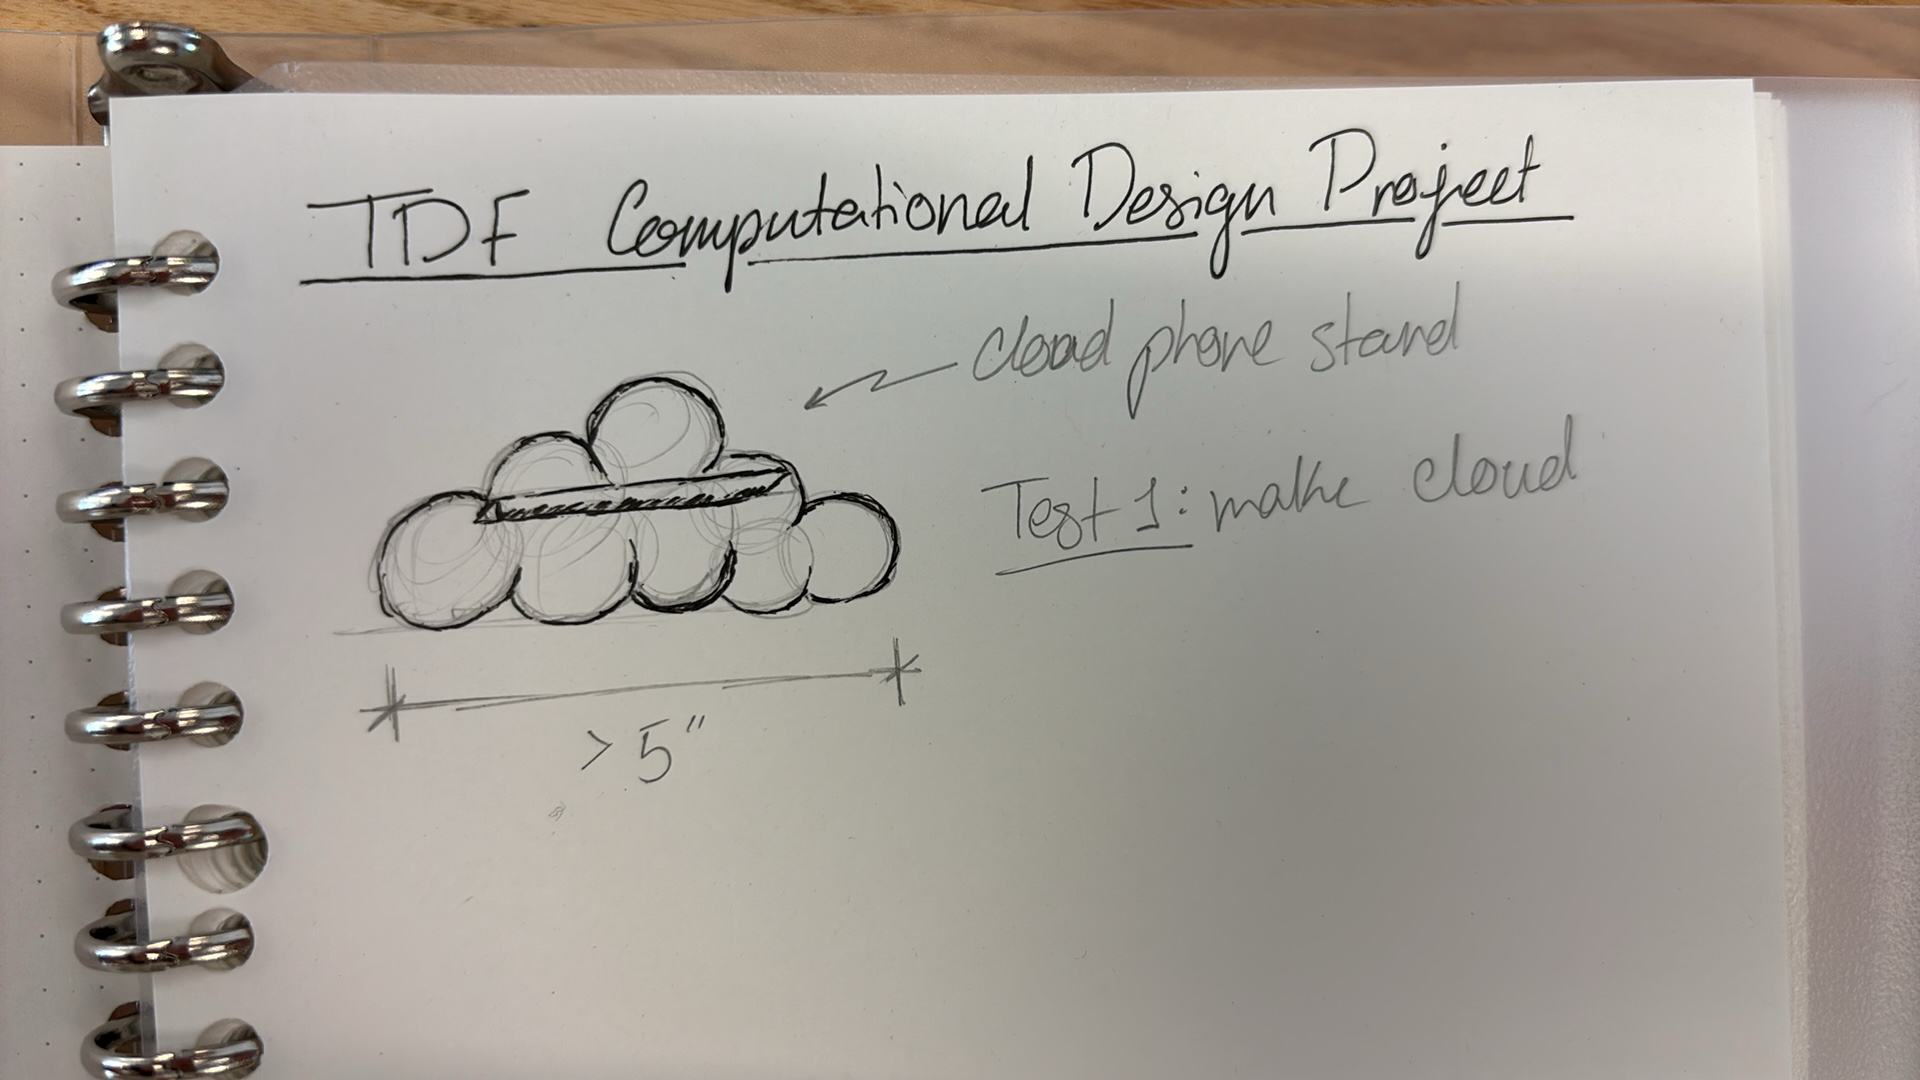 TDF Computational Design Project
cloud phone stand
Test 1: make cloud
> 5"